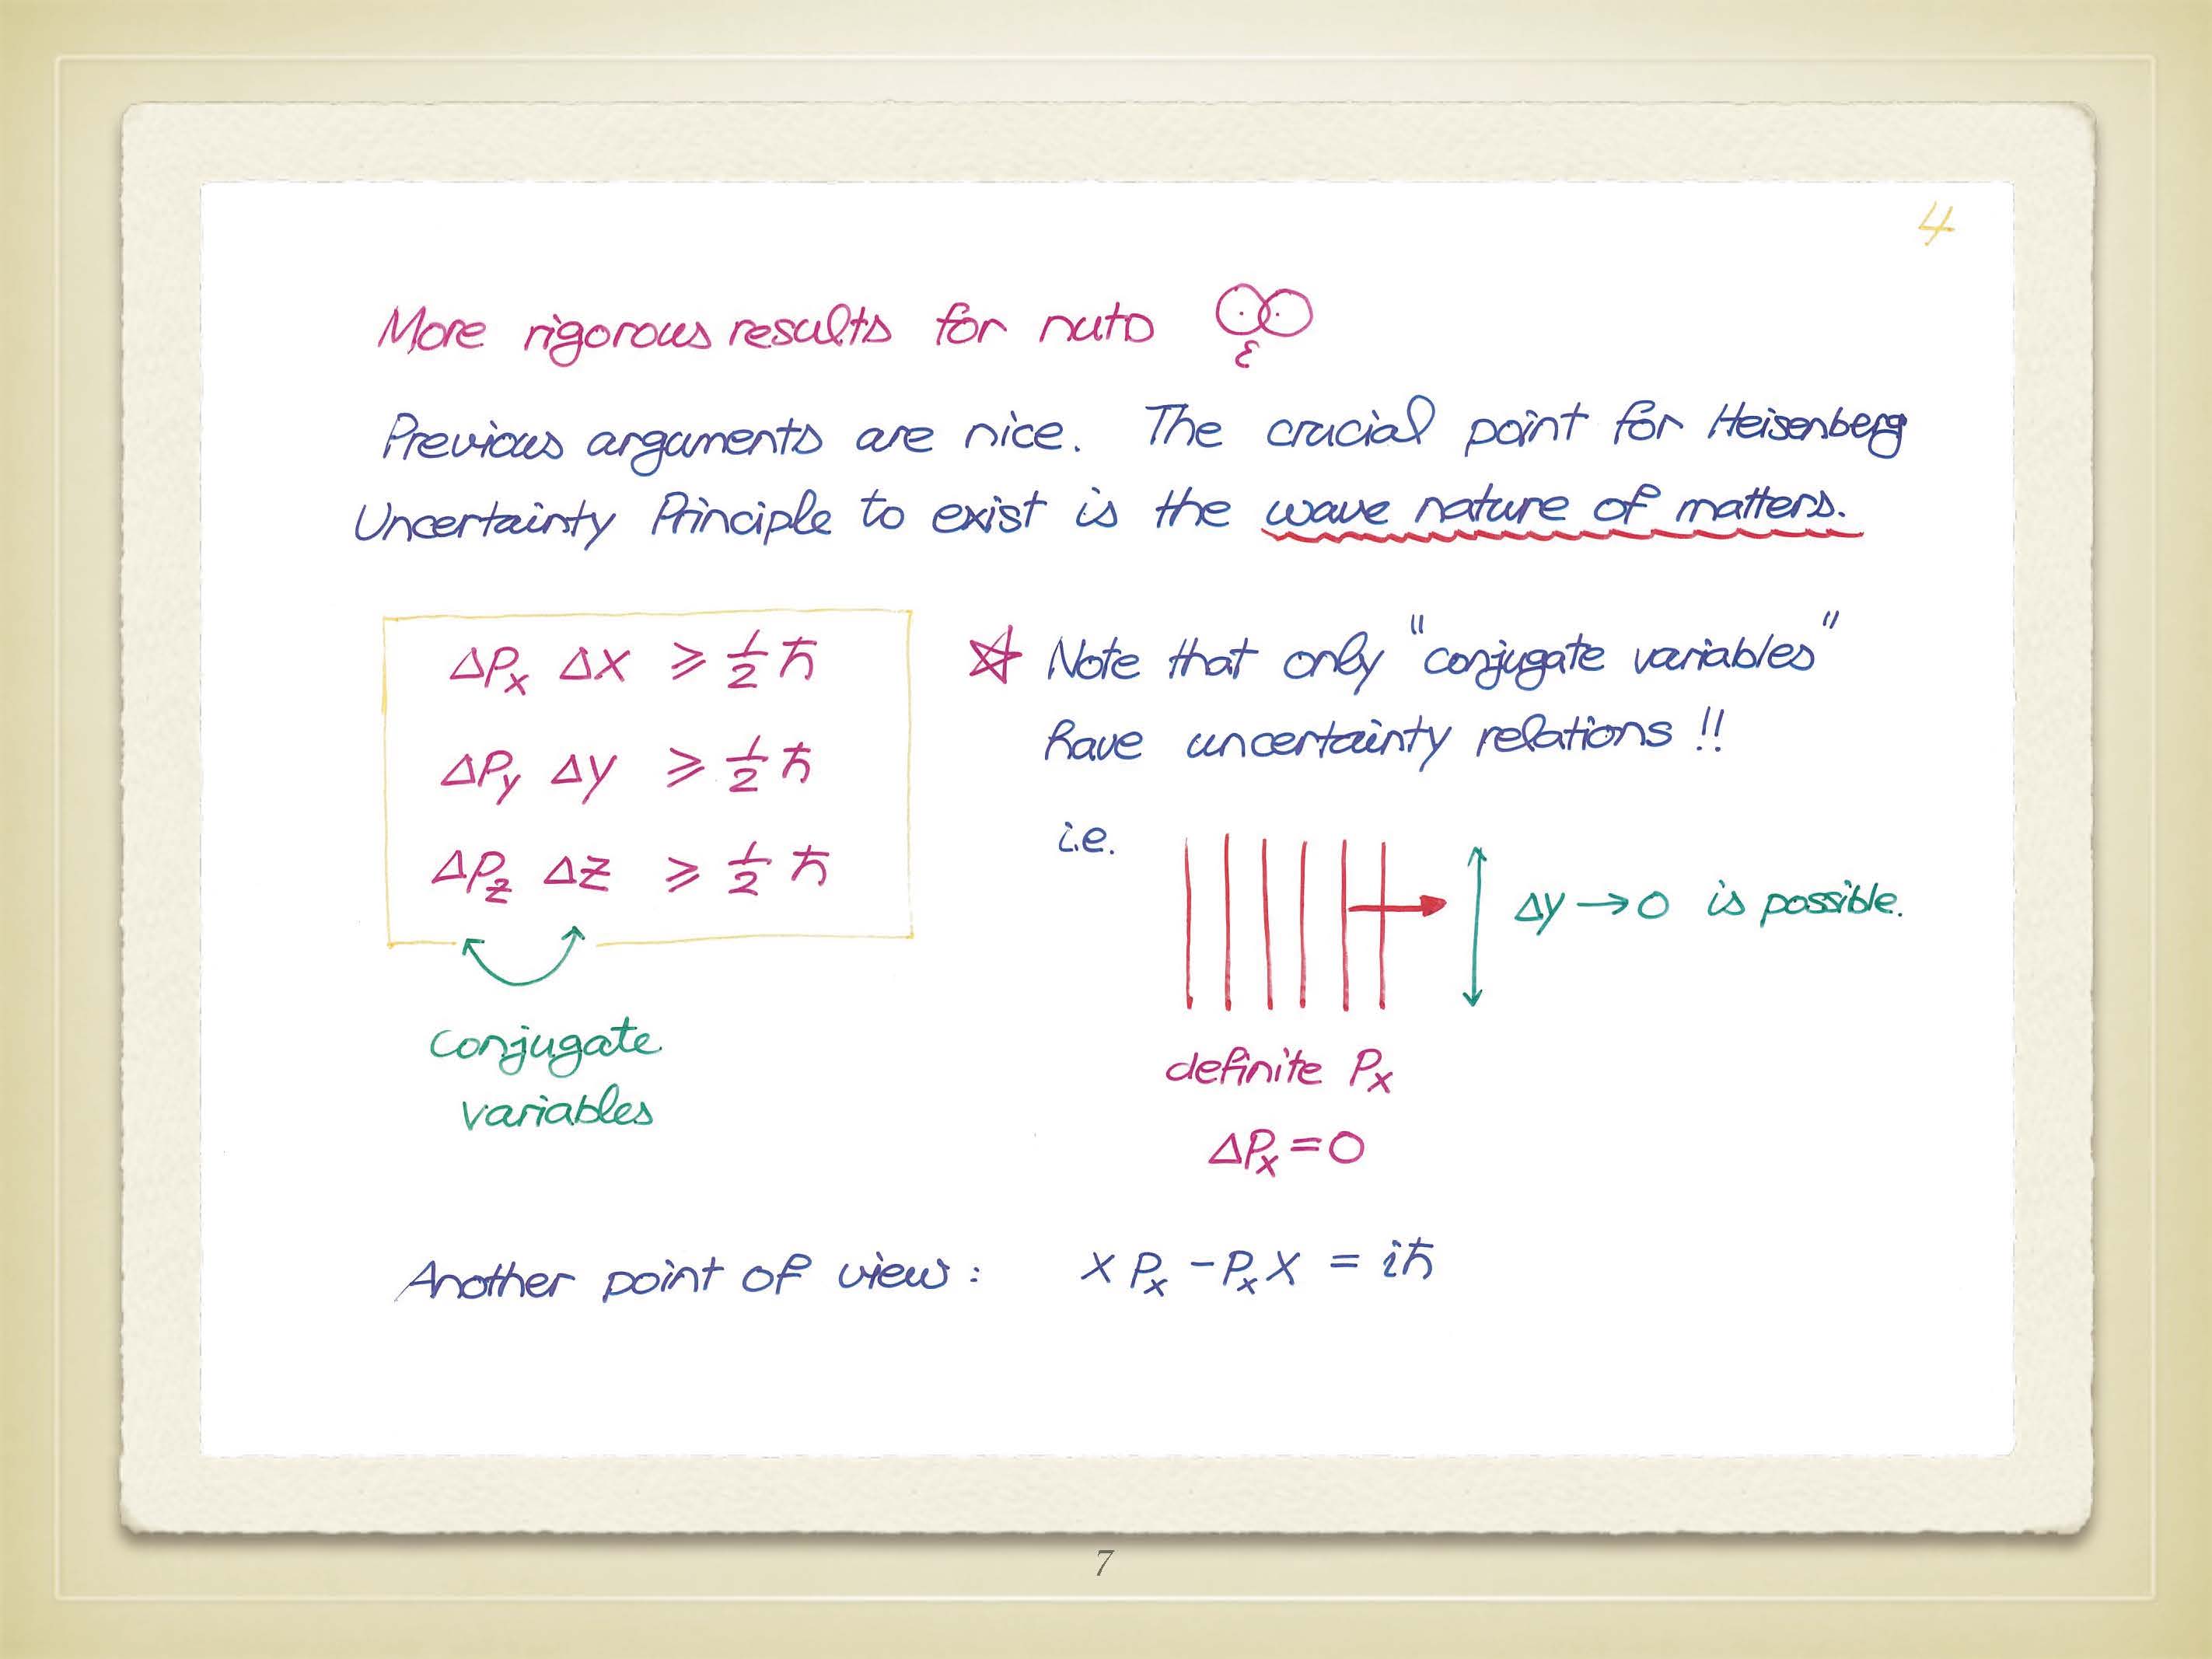 4
More rigorous results for nuts
Previous arguments are nice. The crucial point for Heisenberg
Uncertainty Principle to exist is the wave nature of matters.
ΔPx Δx ⩾ 1/2 ℏ
ΔPy Δy ⩾ 1/2 ℏ
ΔPz Δz ⩾ 1/2 ℏ
conjugate
variables
☆ Note that only "conjugate variables"
have uncertainty relations !!
i.e.
Δy → 0 is possible.
definite Px
ΔPx = 0
Another point of view : x Px - Px x = iℏ
7